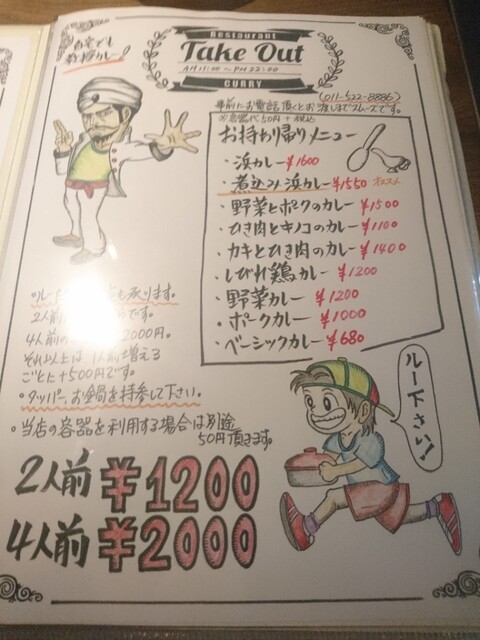 Restaurant
Take Out
AM 11:00 ～ PM 22:00
CURRY
自宅でも
教授カレー!
(011-522-8886)
事前にお電話頂くとお渡しまでスムーズです。
※容器代50円+税込
お持ち帰りメニュー
・浜カレー ¥1600
・煮込み浜カレー ¥1550 オススメ
・野菜とポークのカレー ¥1500
・ひき肉とキノコのカレー ¥1100
・カキとひき肉のカレー ¥1400
・しびれ鶏カレー ¥1200
・野菜カレー ¥1200
・ポークカレー ¥1000
・ベーシックカレー ¥680
・ルー も承ります。
2人前 です。
4人前の 2000円。
それ以上は 1人前増える
ごとに+500円です。
・タッパー、お鍋を持参して下さい。
・当店の容器を利用する場合は別途
50円頂きます。
ルー下さい!
2人前 ¥1200
4人前 ¥2000